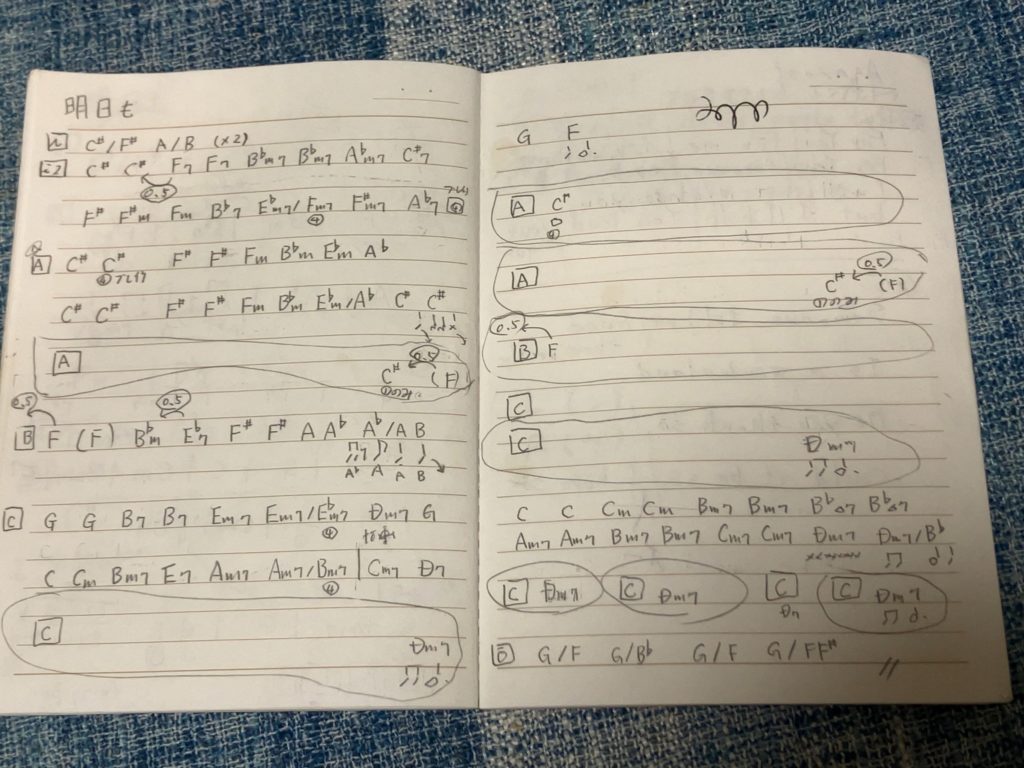 明日も
C#/F# A/B (×2)
C# C# F7 F7 B♭m7 B♭m7 A♭m7 C#7
0.5
F# F#m Fm B♭7 E♭m7/Fm7 F#m7 A♭7
④ ④
A C# C# F# F# Fm B♭m E♭m A♭
④
C# C# F# F# Fm B♭m E♭m/A♭ C# C#
A
0.5
C# (F)
0.5 0.5
B F (F) B♭m E♭7 F# F# A A♭ A♭/A B
A♭ A A B
C G G B7 B7 Em7 Em7/E♭m7 Dm7 G
④
C Cm Bm7 E7 Am7 Am7/Bm7 Cm7 D7
④
C
Dm7
G F
A C#
④
A
0.5
C# (F)
0.5
B F
C
C Dm7
C C Cm Cm Bm7 Bm7 B♭△7 B♭△7
Am7 Am7 Bm7 Bm7 Cm7 Cm7 Dm7 Dm7/B♭
C Dm7 C Dm7 C C Dm7
D7
D G/F G/B♭ G/F G/FF#